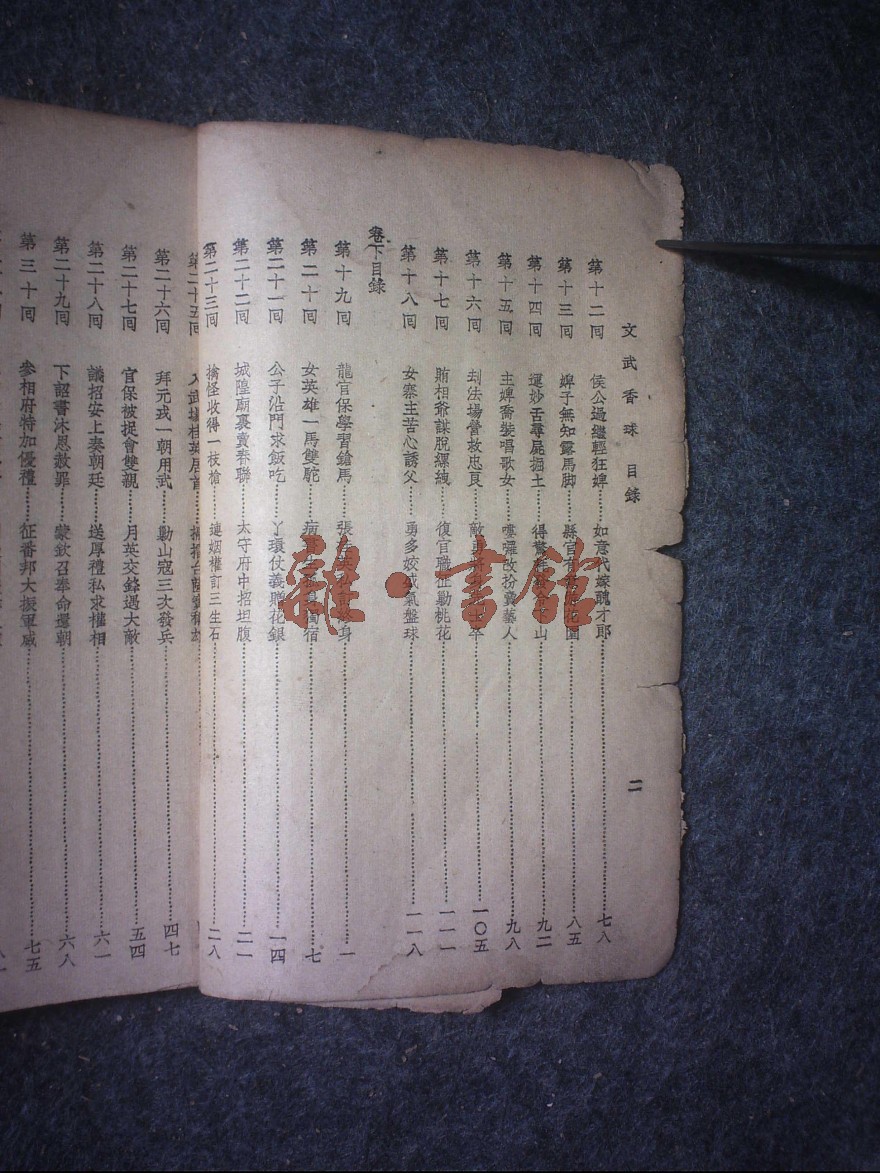 文武香球 目錄
二
第十二囘 侯公過繼輕狂婢 如意代嫁醜才郎 七八
第十三囘 婢子無知露馬脚 縣官有 花園 八五
第十四囘 運妙舌尋屍掘土 得 山 九二
第十五囘 主婢喬裝唱歌女 嘍囉改扮賣藝人 九八
第十六囘 刦法塲營救忠良 敵 一〇五
第十七囘 賄相爺謀脫縲絏 復官職征勦桃花 一一一
第十八囘 女寨主苦心誘父 勇多姣 氣盤球 一一八
卷下目錄
第十九囘 龍官保學習鎗馬 張 身 一
第二十囘 女英雄一馬雙駝 病 宿 七
第二十一囘 公子沿門求飯吃 丫環仗義贈花銀 一四
第二十二囘 城隍廟裏賣春聯 太守府中招坦腹 二一
第二十三囘 擒怪收得一枝槍 連姻權訂三生石 二八
第二十五囘 入武塲桂英居首
第二十六囘 拜元戎一朝用武 勦山寇三次發兵 四七
第二十七囘 官保被捉會雙親 月英交鋒遇大敵 五四
第二十八囘 議招安上奏朝廷 送厚禮私求權相 六一
第二十九囘 下詔書沐恩赦罪 蒙欽召奉命還朝 六八
第三十囘 參相府特加優禮 征番邦大振軍威 七五
雜·書館